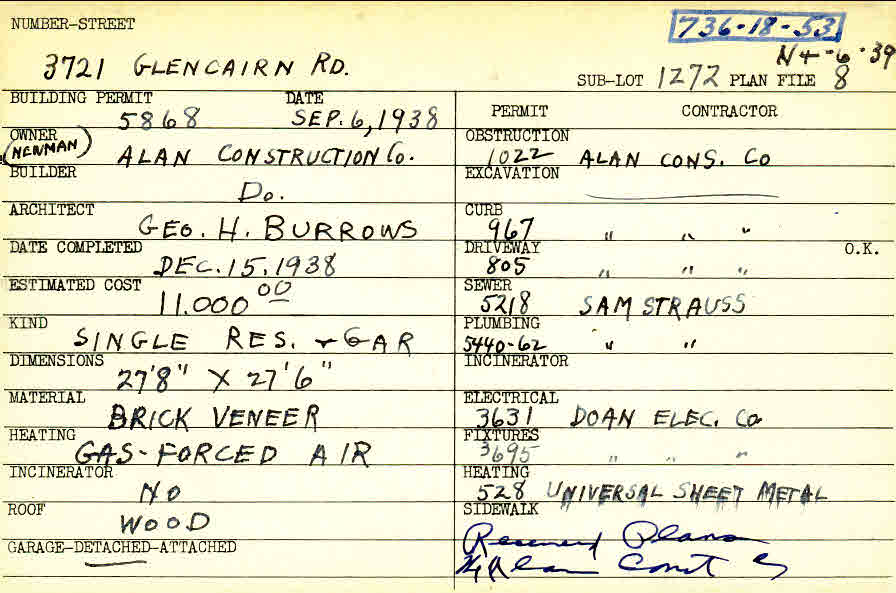 NUMBER-STREET
736-18-53
N4-6-39
3721 GLENCAIRN RD.
SUB-LOT 1272 PLAN FILE 8
BUILDING PERMIT DATE
5868 SEP. 6, 1938
OWNER
(NEWMAN) ALAN CONSTRUCTION Co.
BUILDER
Do.
ARCHITECT
GEO. H. BURROWS
DATE COMPLETED
DEC. 15, 1938
ESTIMATED COST
11.000 00
KIND
SINGLE RES. + GAR
DIMENSIONS
27'8" X 27'6"
MATERIAL
BRICK VENEER
HEATING
GAS-FORCED AIR
INCINERATOR
NO
ROOF
WOOD
GARAGE-DETACHED-ATTACHED
PERMIT CONTRACTOR
OBSTRUCTION
1022 ALAN CONS. CO
EXCAVATION
CURB
967 " " "
DRIVEWAY O.K.
805 " " "
SEWER
5218 SAM STRAUSS
PLUMBING
5440-62 " "
INCINERATOR
ELECTRICAL
3631 DOAN ELEC. Co.
FIXTURES
3695 " " "
HEATING
528 UNIVERSAL SHEET METAL
SIDEWALK
Received Plans
Alan Const Co